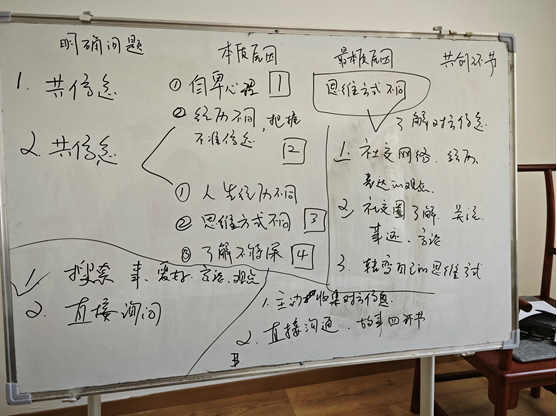 明确问题 本质原因 最本质原因 共创环节
1. 共信息
① 自卑心理 1
思维方式不同
② 经历不同，把握
不准信息
2
了解对方信息
2. 共信息
1. 社交网络、经历
表达的观点
① 人生经历不同
② 思维方式不同 3
2. 社交圈了解、关注
事迹、言论
③ 了解不够深 4
3. 转变自己的思维方式
1. 搜索 事、爱好、言论、观点
2. 直接询问
1. 主动收集对方信息
2. 直接沟通、故事四环节